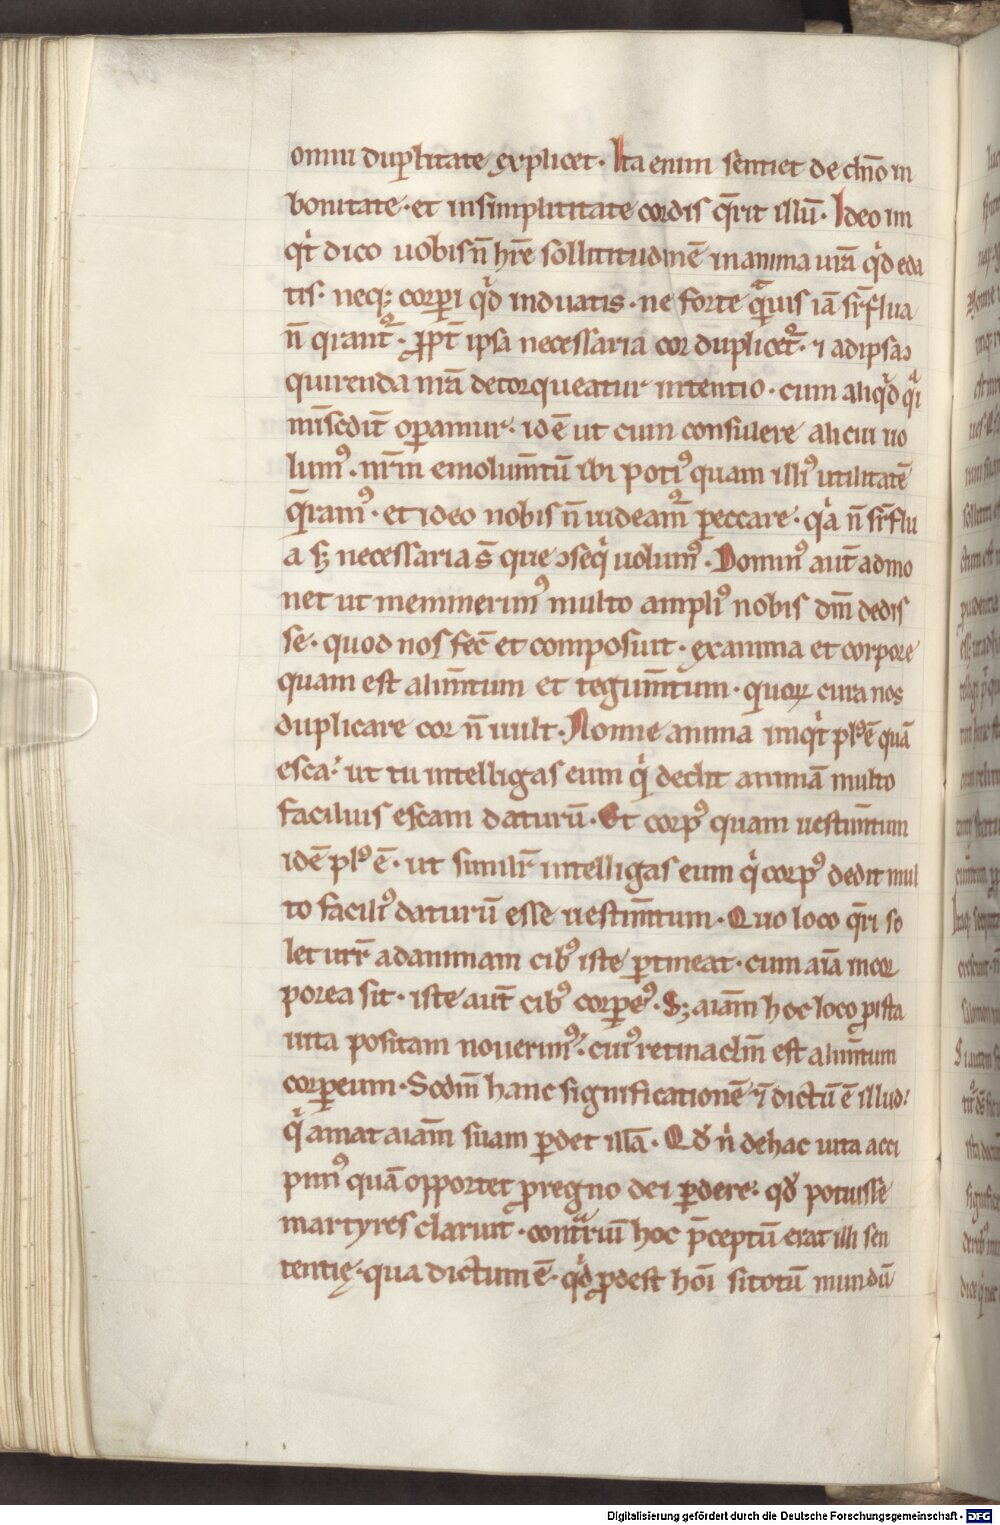 omni duplitate explicet · Ita enim sentiet de dn̄o in
bonitate · et insimplititate cordis q̄rit illū · Ideo in
qͥt dico uobis n̄ hr̄e sollititudinē in anima ur̄a qͥd eda
tis · neq; corpori qͥd induatis · ne forte qͣmuis iā sup̄flua
n̄ q̄rantᷣ · ꝓpt̄ ipsa necessaria cor duplicetᷣ · ⁊ ad ipsa ↄ
quirenda nr̄a detorqueatur intentio · cum aliqͥd qͣi
mis̄cdit̄ operamur · id ē ut cum consulere alicui uo
lumꝰ · nr̄m emolum̄tū ibi potiꝰ quam illiꝰ utilitatē
q̄ramꝰ · et ideo nobis n̄ uideamᷣ peccare · qͥa n̄ sup̄flu
a sꝫ necessaria s̄ que ↄseqͥ uolumꝰ · Dominꝰ aut̄ admo
net ut meminerimꝰ multo ampliꝰ nobis dm̄ dedis
se · quod nos fec̄ et composuit · ex anima et corpore
quam est alim̄tum et tegum̄tum · quoꝝ cura nos
duplicare cor n̄ uult · Nonne anima inqͥt plꝰ ē quā
esca · ut tu intelligas eum qͥ dedit animā multo
facilius escam daturū · Et corpꝰ quam uestim̄tum
idē plꝰ ē · ut similit̄ intelligas eum qͥ corpꝰ dedit mul
to faciliꝰ daturū esse uestim̄tum · Quo loco q̄ri so
let utr̄ ad animam cibꝰ iste ꝑtineat · cum aīa incor
porea sit · iste aut̄ cibꝰ corꝑeꝰ · Sꝫ aīam hoc loco ꝓ ista
uita positam nouerimꝰ · cuiꝰ retinaclm̄ est alim̄tum
corꝑeum · Scd̄m hanc significationē ⁊ dictū ē illud ·
qͥ amat aīam suam ꝑdet illā · Qd̄ nͥ de hac uita acci
pimꝰ quā opportet ꝓ regno dei ꝑdere · qd̄ potuisse
martyres claruit · contͣriū hoc p̄ceptū erat illi sen
tentię · qua dictum ē · qͥd ꝓdest hōi si totū mundū
Digitalisierung gefördert durch die Deutsche Forschungsgemeinschaft - DFG